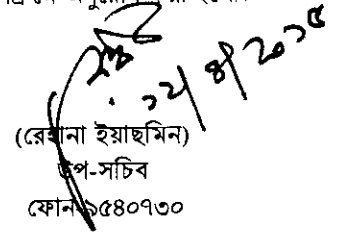 ১২/৪/২০১৫
(রেহানা ইয়াছমিন)
উপ-সচিব
ফোন-৯৫৪০৭৩০